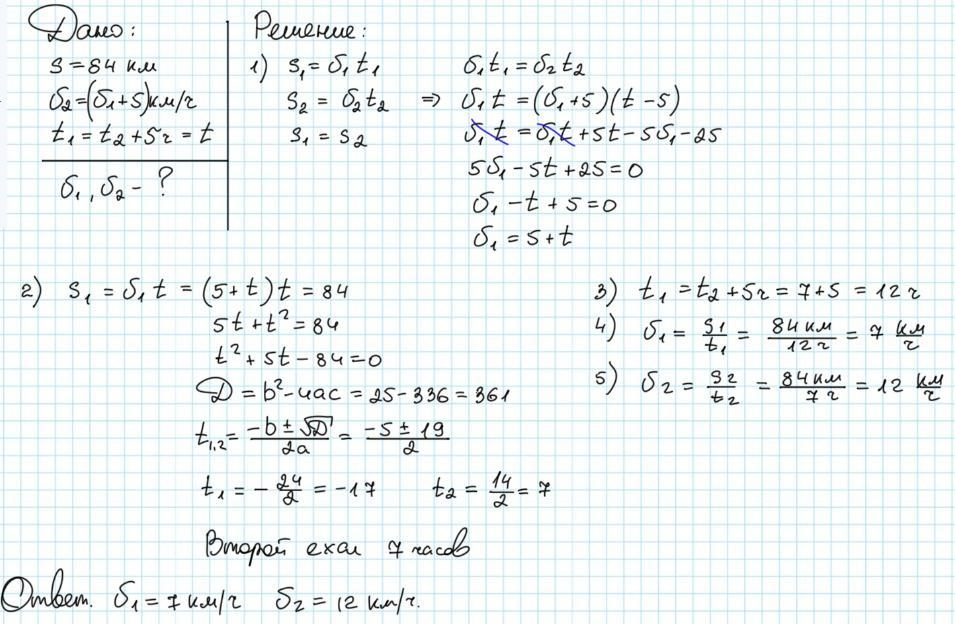 Дано:
S = 84 км
υ₂ = (υ₁ + 5) км/ч
t₁ = t₂ + 5ч = t
υ₁, υ₂ - ?
Решение:
1) S₁ = υ₁ t₁
S₂ = υ₂ t₂ ⇒
S₁ = S₂
υ₁ t₁ = υ₂ t₂
υ₁ t = (υ₁ + 5) (t - 5)
υ₁ t = υ₁ t + 5t - 5υ₁ - 25
5υ₁ - 5t + 25 = 0
υ₁ - t + 5 = 0
υ₁ = 5 + t
2) S₁ = υ₁ t = (5 + t) t = 84
5t + t² = 84
t² + 5t - 84 = 0
D = b² - 4ac = 25 - 336 = 361
t₁,₂ = (-b ± √D)/2a = (-5 ± 19)/2
t₁ = - 24/2 = -17 t₂ = 14/2 = 7
Второй ехал 7 часов
3) t₁ = t₂ + 5ч = 7 + 5 = 12 ч
4) υ₁ = S₁/t₁ = 84 км/12 ч = 7 км/ч
5) υ₂ = S₂/t₂ = 84 км/7 ч = 12 км/ч
Ответ. υ₁ = 7 км/ч υ₂ = 12 км/ч.